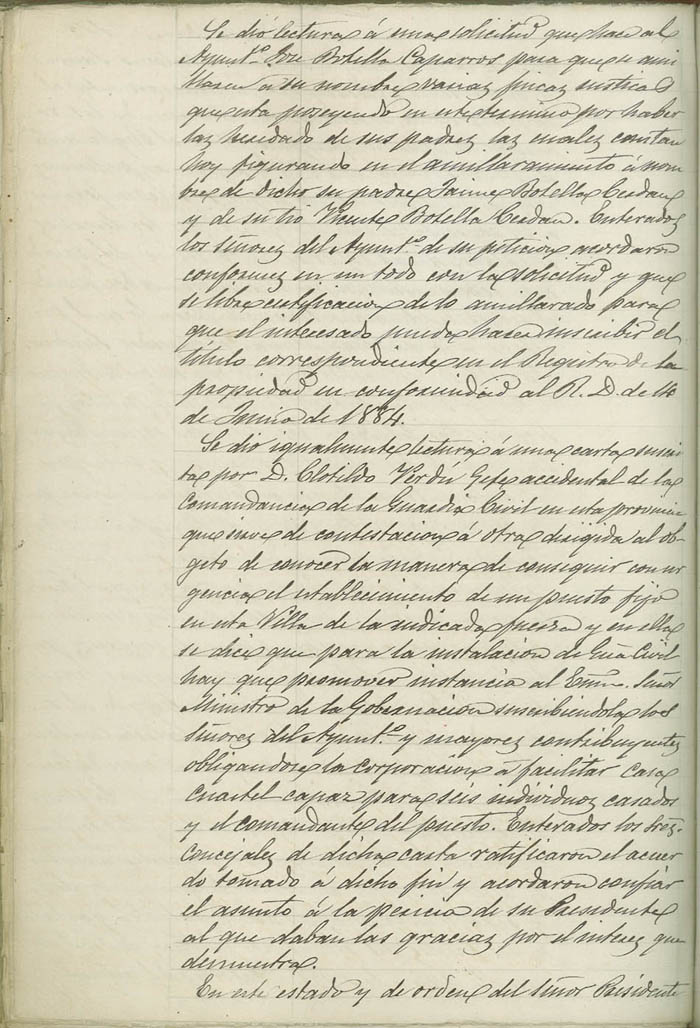 Se dió lectura á una solicitud que hace al
Ayuntº. José Botella Caparros para que se ami
llaren á su nombre varias fincas rusticas
que esta poseyendo en este termino por haber
las heredado de sus padres las cuales constan
hoy figurando en el amillaramiento á nom
bre de dicho su padre Jaime Botella Cerdan
y de su tio Vicente Botella Cerdan. Enterados
los señores del Ayuntº. de su peticion acordaron
conformes en un todo con la solicitud y que
se libre certificacion de lo amillarado para
que el interesado pueda hacer inscribir el
titulo correspondiente en el Registro de la
propiedad en conformidad al R. D. de 10
de Junio de 1884.
Se dio igualmente lectura á una carta suscri
ta por D. Clotildo Verdú Gefe accidental de la
Comandancia de la Guardia Civil en esta provincia
que sirve de contestacion á otra dirijida al ob-
geto de conocer la manera de conseguir con ur
gencia el establecimiento de un puesto fijo
en esta Villa de la indicada fuerza y en ella
se dice que para la instalacion de Guª Civil
hay que promover instancia al Exmº. Señor
Ministro de la Gobernación suscribiendola los
Señores del Ayuntº. y mayores contribuyentes
obligandose la corporacion á facilitar Casa
Cuartel capaz para séis individuos casados
y el comandante del puesto. Enterados los Sres.
Concejales de dicha carta ratificaron el acuer
do tomado á dicho fin y acordaron confiar
el asunto á la pericia de su Presidente
al que daban las gracias por el interes que
demuestra.
En este estado y de orden del Señor Presidente